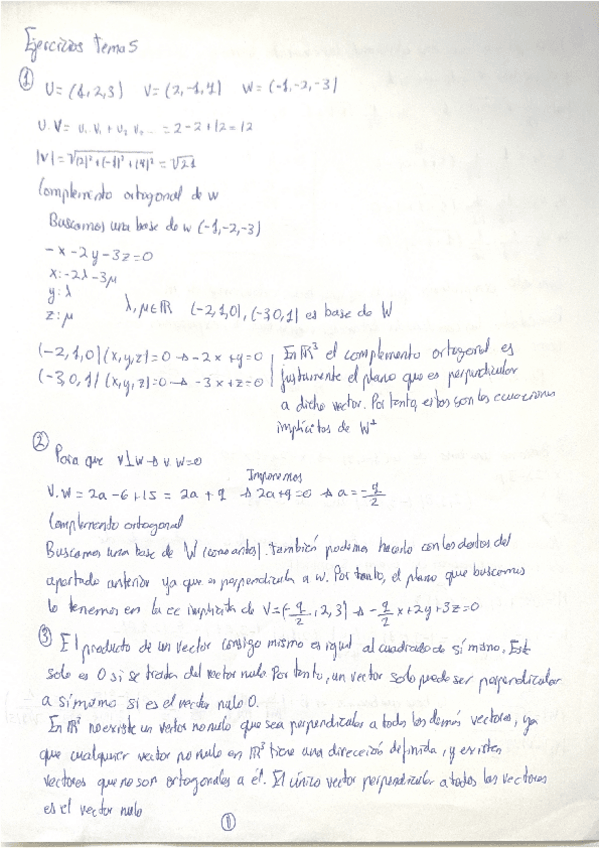 Ejercicios tema 5
① U = (1,2,3) V = (2,-1,4) W = (-1,-2,-3)
U·V = u₁ v₁ + u₂ v₂ ... = 2-2+12 = 12
|V| = √(2)²+(-1)²+(4)² = √21
Complemento ortogonal de w
Buscamos una base de w (-1,-2,-3)
-x-2y-3z=0
x: -2λ-3μ
y: λ
z: μ
λ, μ ∈ ℝ (-2,1,0), (-3,0,1) es base de W
(-2,1,0)(x,y,z)=0 → -2x+y=0
(-3,0,1)(x,y,z)=0 → -3x+z=0
En ℝ³ el complemento ortogonal es
justamente el plano que es perpendicular
a dicho vector. Por tanto, estas son las ecuaciones
implícitas de W⊥
② Para que v⊥w → v·w=0
Imponemos
V·W = 2a-6+15 = 2a+9 → 2a+9=0 → a=-9/2
Complemento ortogonal
Buscamos una base de W (como antes). también podemos hacerlo con los datos del
apartado anterior ya que es perpendicular a w. Por tanto, el plano que buscamos
lo tenemos en la ec implícita de V=(-9/2, 2, 3) → -9/2 x+2y+3z=0
③ El producto de un vector consigo mismo es igual al cuadrado de sí mismo. Este
solo es 0 si se trata del vector nulo. Por tanto, un vector solo puede ser perpendicular
a sí mismo si es el vector nulo 0.
En ℝ³ no existe un vector no nulo que sea perpendicular a todos los demás vectores, ya
que cualquier vector no nulo en ℝ³ tiene una dirección definida, y existen
vectores que no son ortogonales a él. El único vector perpendicular a todos los vectores
es el vector nulo
①